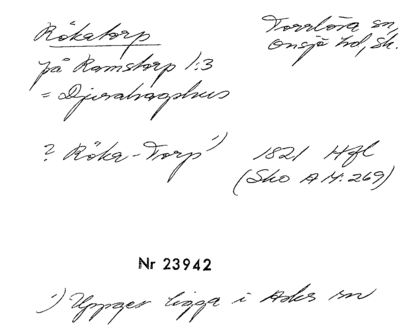 Rökatorp Torrlösa sn,
Onsjö hd, Sk.
på Ramstorp 1:3
= Djurahagshus
? Röka-Torp¹) 1821 Hfl
(Sko A II: 269)
Nr 23942
¹) Uppges ligga i Asks sn